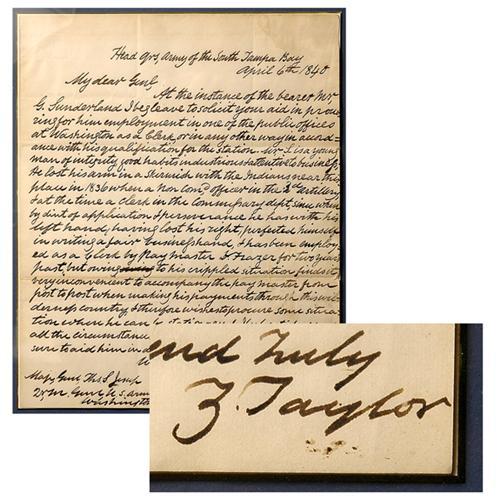 Head Qrs Army of the South Tampa Bay
April 6th 1840
My dear Genl,
At the instance of the bearer Mr
G. Sunderland I beg leave to solicit your aid in procu
ring for him employment in one of the public offices
at Washington as a Clerk or in any other way in accord-
ance with his qualification for the station. Mr. S. is a young
man of integrity good habits industrious & attentive to business
He lost his arm in a skirmish with the Indians near this
place in 1836 when a Non Comd officer in the 2d Artillery
& at the time a clerk in the Commissary dept, since when
by dint of application & perseverance he has with his
left hand, having lost his right, perfected himself
in writing a fair business hand, & has been employ-
ed as a Clerk by Pay master Frazer for two years
past, but owing to his crippled situation finds it
very inconvenient to accompany the pay master from
post to post when making his payments through this wil-
derness country & therefore wishes to procure some situa-
tion where he can be
all the circumstance
sure to aid him in
Majr Genl Ths S. Jesup
Qr M. Genl U.S. army
Washington
end Truly
Z. Taylor